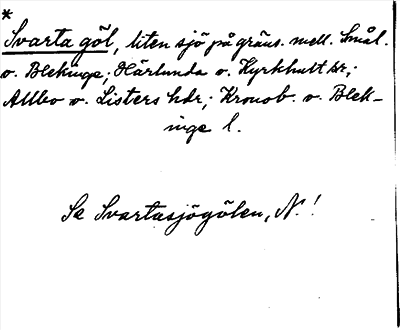 *
Svarta göl, liten sjö på gräns. mell. Smål.
o. Blekinge; Härlunda o. Kyrkhult sr.;
Allbo o. Listers hdr; Kronob. o. Blek-
inge l.
Se Svartasjögölen, N.!